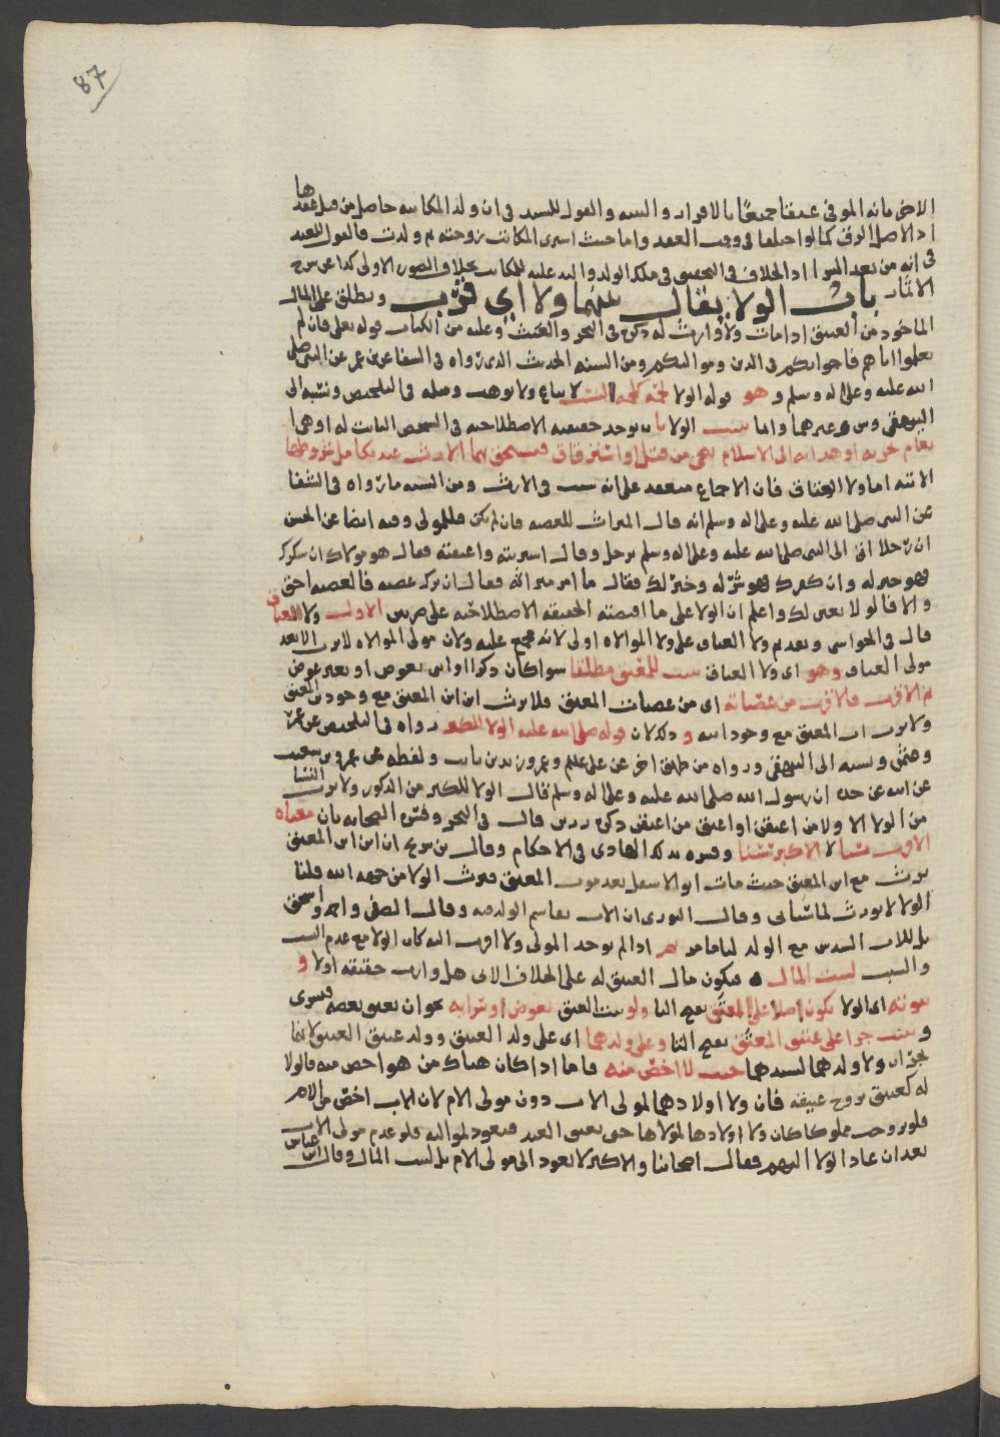 87
الاخر بانه الموفي عتقا جميعًا بالاقرار والبينه والقول للسيد في ان ولد المكاتبه حاصل من قبل عقدها
اذ الاصل الرق كما لو اختلفا في وقت العقد واما حيث اشترى المكاتب زوجته ثم ولدت فالقول للعبد
في انه من بعد الشرا اذ الخلاف في التحقيق في ملك الولد واليد عليه للمكاتب بخلاف الصوره الاولى كذا عن شرح
الاثمار باب الولا يقال بينهما ولا اي قرب ويطلق على المال
الماخوذ من العتيق اذا مات ولا وارث له ذكره في البحر والغيث وعليه من الكتاب قوله تعالى فان لم
تعلموا اباهم فاخوانكم في الدين ومواليكم ومن السنه الحديث الذي رواه في الشفا عن بن عمر عن النبي صلى
الله عليه وعلى اله وسلم و هو قوله الولا لحمة كلحمة النسب لا يباع ولا يوهب ومثله في التلخيص ونسبه الى
البيهقي وغيرهما وانما يثبت الولا بان يوجد حقيقته الاصطلاحيه في الشخص الثابت له او هي ا
نعام بحريه او هدايه الى الاسلام فهي من قتل او استرقاق فيستحق بها الارث عند تكامل شروطها
الاتيه اما ولا العتاق فان الاجماع منعقد على انه سبب في الارث ومن السنه ما رواه في الشفا
عن النبي صلى الله عليه وعلى اله وسلم انه قال الميراث للعصبه فان لم يكن فللمولى وفيه ايضا عن الحسن
ان رجلا اتى الى النبي صلى الله عليه وعلى اله وسلم برجل وقال اشتريته واعتقته فقال هو مولاك ان شكرك
فهو خير له وان كفرك فهو شر له وخير لك فقال ما امر ميراثه فقال ان ترك عصبه فالعصبه احق
والا فالولا يعني لك واعلم ان الولا على ما اقتضته الحقيقه الاصطلاحيه على ضربين الاول ولا العتاق
قال في الحواشي وتقديم ولا العتاق على ولا الموالاه اولى لانه مجمع عليه ولان مولى الموالاه لا يرث الا بعد
مولى العتاق وهو اي ولا العتاق يثبت للمعتق مطلقا سوا كان ذكرا او انثى بعوض او بغير عوض
ثم الاقرب فالاقرب من عصباته اي من عصبات المعتق فلا يرث ابن ابن المعتق مع وجود بن المعتق
ولا يرث اب المعتق مع وجود ابنه و ذلك لان قوله صلى الله عليه الولا للكبر رواه في التلخيص عن عمر
وعثمن ونسبه الى البيهقي ورواه من طريق اخرى عن علي علم وعمر وزيد بن ثابت ولفظه عن عمرو بن شعيب
عن ابيه عن جده ان رسول الله صلى الله عليه وعلى اله وسلم قال الولا للكبر من الذكور ولا يرث النسا
من الولا الا ولا من اعتقن او اعتق من اعتقن ذكره رزين قال في البحر وفسره الصحابه بان معناه
الاقرب نسبا لا الاكبر سنا وفسره بذلك الهادي في الاحكام وقال بن شريح ان ابن ابن المعتق
يرث مع ابن المعتق حيث مات ابوالاسفل بعد موت المعتق فيرث الولا من جهه ابيه قلنا
الولا لا يورث لما سياتي وقال الثوري ان الاب يقاسم الولد فيه وقال النخعي واحمد واسحق
بل للاب السدس مع الولد لنا ما مر ثم اذا لم يوجد المولى ولا اقرب اليه كان الولا مع عدم النسب
والسبب لبيت المال فيكون مال العتيق له على الخلاف الاتي هل وارث حقيقه او لا و
ثبوته اي الولا يكون اصلا على المعتَق بفتح التا ولو بيت العتق بعوض او سرايه نحو ان يعتق بعضه فيسري
ويثبت جرا على عتيق المعتَق بفتح التا وعلى ولدهما اي على ولد العتيق وولد عتيق العتيق لانهما
يجران ولا ولدهما لسيدهما حيث لا اخص منه فاما اذا كان هناك من هو اخص منه فالولا
له كعتيق تزوج عتيقه فان ولا اولادهما لمولى الاب دون مولى الام لان الاب اخص من الام
فلو تزوجت مملوكا كان ولا اولادها لمولاها حتى يعتق العبد فيعود لمواليه فلو عدم مولى الاب
بعد ان عاد الولا اليهم فقال اصحابنا والاكثر لا يعود الى مولى الام بل لبيت المال وقال ابن عباس